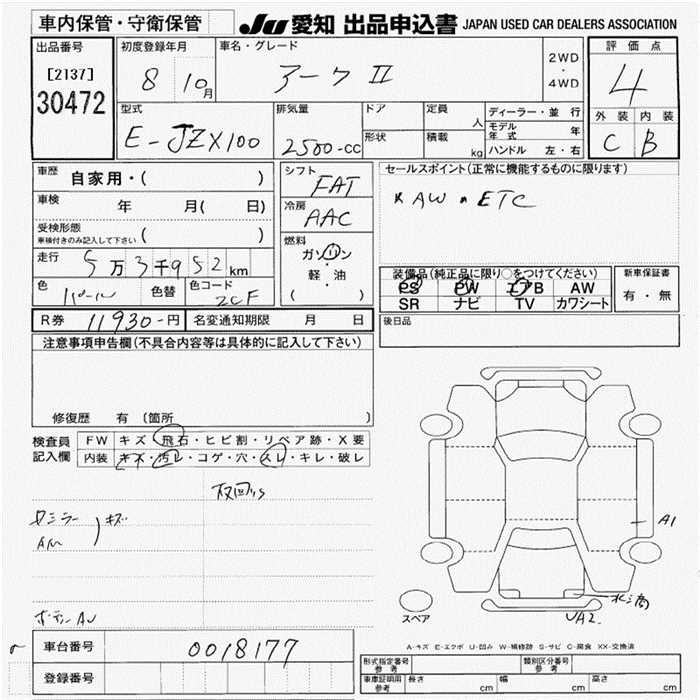 車内保管・守衛保管
JU 愛知 出品申込書 JAPAN USED CAR DEALERS ASSOCIATION
出品番号
[2137]
30472
初度登録年月
8 10月
車名・グレード
マークⅡ
2WD
・
4WD
評価点
4
外装 内装
C B
型式
E-JZX100
排気量
2500-cc
ドア
形状
定員 人
積載 kg
ディーラー・並行
モデル年式 年
ハンドル 左・右
車歴 自家用・( )
車検 年 月( 日)
受検形態
車検付きのみ記入して下さい ( )
走行 5万3千952km
色 パール 色替 色コード 2CF
シフト
FAT
冷房
AAC
燃料
ガソリン
・
軽・油
( )
セールスポイント(正常に機能するものに限ります)
AW ETC
装備品(純正品に限り○をつけてください)
PS PW エアB AW
SR ナビ TV カワシート
新車保証書
有・無
R券 11930-円 名変通知期限 月 日
後日品
注意事項申告欄(不具合内容等は具体的に記入して下さい)
修復歴 有 (箇所 )
検査員記入欄
FW キズ・飛石・ヒビ割・リペア跡・X要
内装 キズ・汚レ・コゲ・穴・スレ・キレ・破レ
キズ
AM
A1
UA2
スペア
A-キズ E-エクボ U-凹み W-補修跡 S-サビ C-腐食 XX-交換済
車台番号 0018177
登録番号
形式指定番号 参考
類別区分番号 参考
車庫証明用 参考 長さ cm 幅 cm 高さ cm